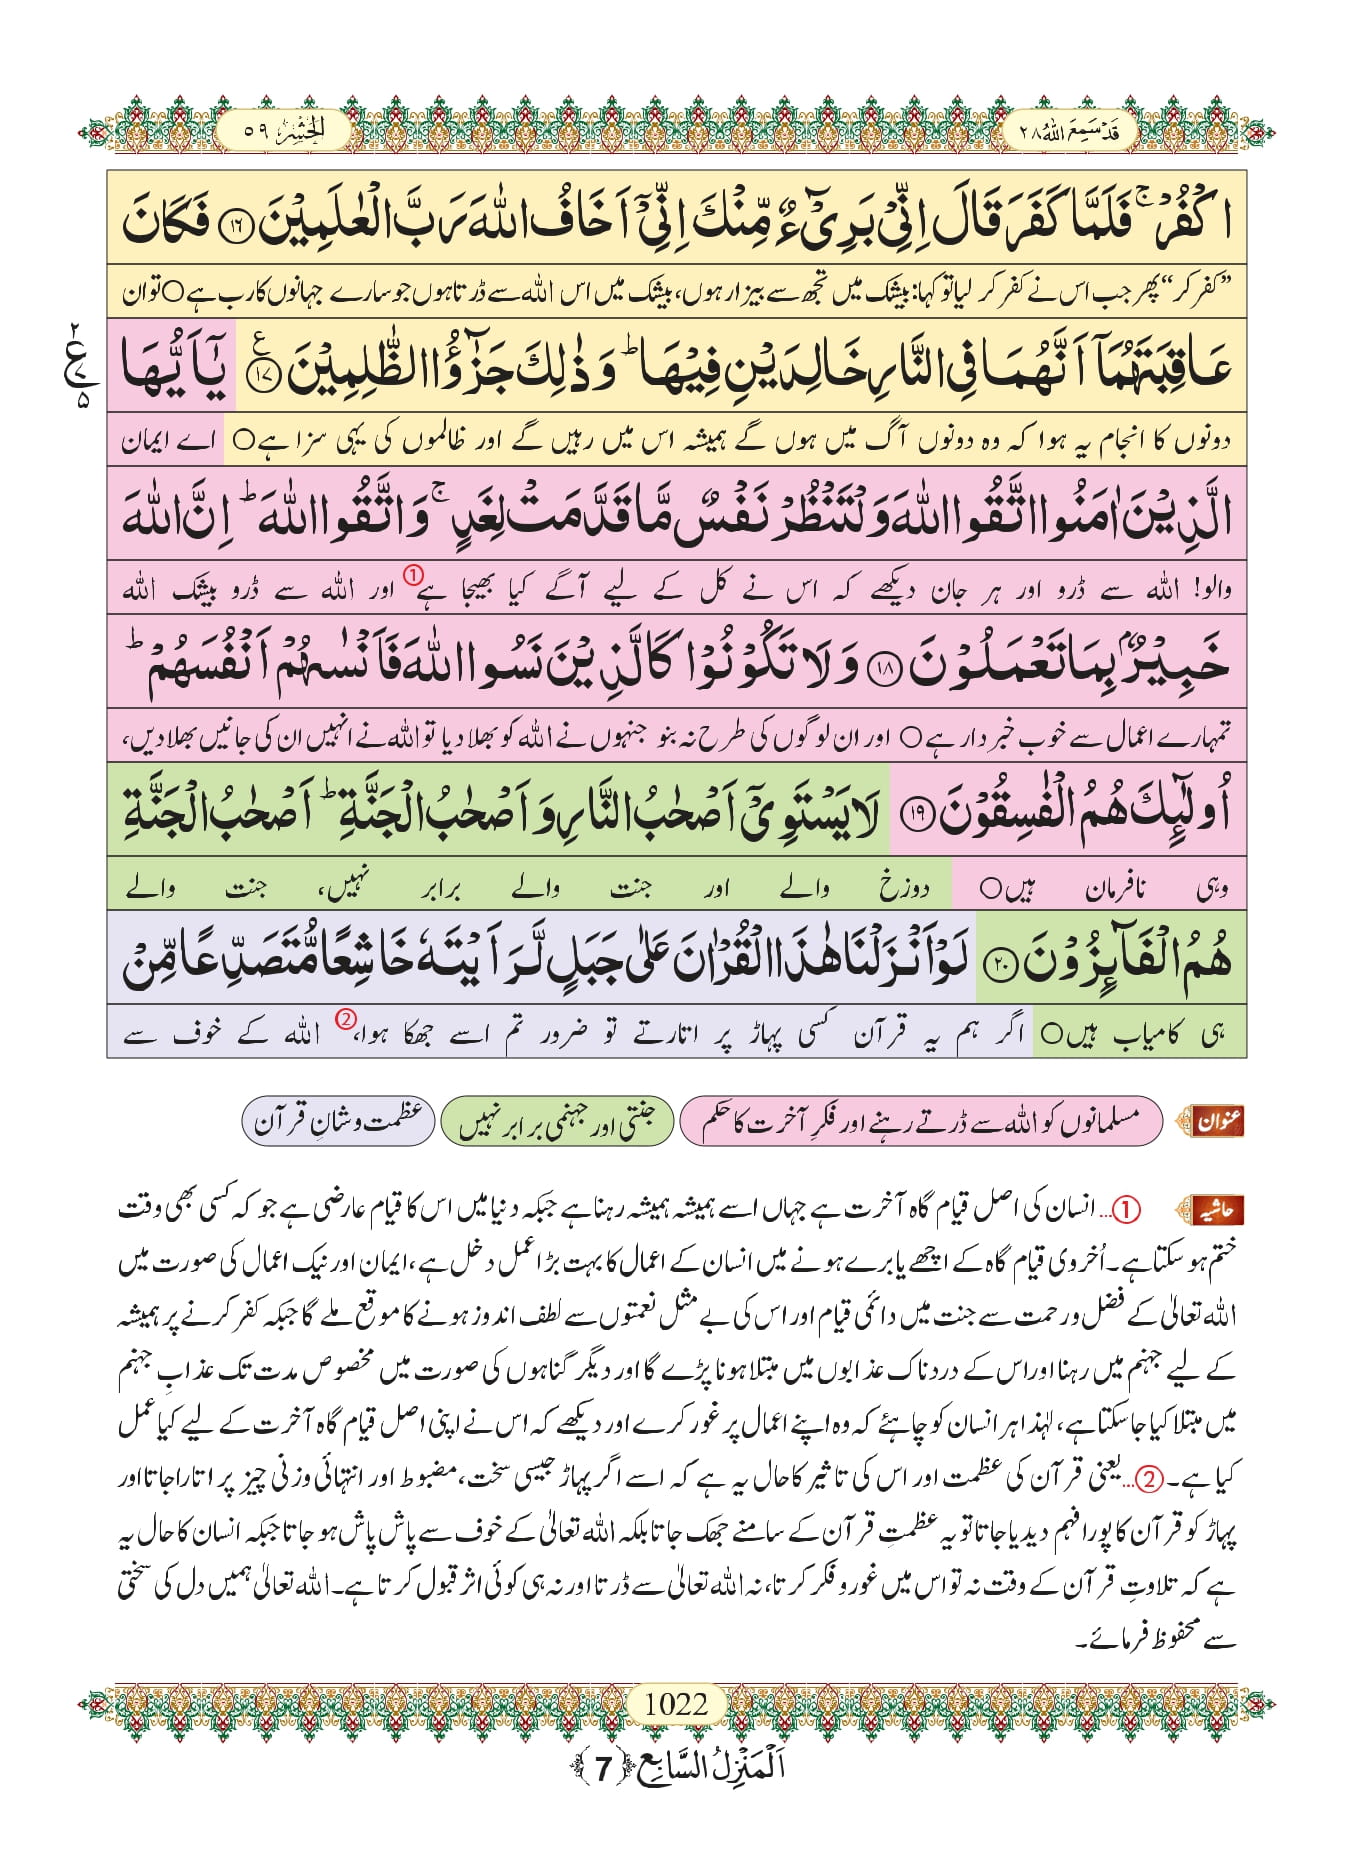 قَدْ سَمِعَ اللهُ ٢٨
الْحَشْر ٥٩
اكْفُرْ ۚ فَلَمَّا كَفَرَ قَالَ اِنِّیْ بَرِیْٓءٌ مِّنْكَ اِنِّیْۤ اَخَافُ اللهَ رَبَّ الْعٰلَمِیْنَ ﴿۱۶﴾ فَكَانَ
”کفر کر“ پھر جب اس نے کفر کر لیا تو کہا: بیشک میں تجھ سے بیزار ہوں، بیشک میں اس اللہ سے ڈرتا ہوں جو سارے جہانوں کا رب ہے ○ تو ان
عَاقِبَتَهُمَاۤ اَنَّهُمَا فِی النَّارِ خَالِدَیْنِ فِیْهَا ؕ وَ ذٰلِكَ جَزٰٓؤُا الظّٰلِمِیْنَ ﴿۱۷﴾ ع یٰۤاَیُّهَا
٢ ع ٧ ٥
دونوں کا انجام یہ ہوا کہ وہ دونوں آگ میں ہوں گے ہمیشہ اس میں رہیں گے اور ظالموں کی یہی سزا ہے ○ اے ایمان
الَّذِیْنَ اٰمَنُوا اتَّقُوا اللهَ وَ لْتَنْظُرْ نَفْسٌ مَّا قَدَّمَتْ لِغَدٍ ۚ وَ اتَّقُوا اللهَ ؕ اِنَّ اللهَ
والو! اللہ سے ڈرو اور ہر جان دیکھے کہ اس نے کل کے لیے آگے کیا بھیجا ہے ① اور اللہ سے ڈرو بیشک اللہ
خَبِیْرٌۢ بِمَا تَعْمَلُوْنَ ﴿۱۸﴾ وَ لَا تَكُوْنُوْا كَالَّذِیْنَ نَسُوا اللهَ فَاَنْسٰىهُمْ اَنْفُسَهُمْ ؕ
تمہارے اعمال سے خوب خبردار ہے ○ اور ان لوگوں کی طرح نہ بنو جنہوں نے اللہ کو بھلا دیا تو اللہ نے انہیں ان کی جانیں بھلا دیں،
اُولٰٓىِٕكَ هُمُ الْفٰسِقُوْنَ ﴿۱۹﴾ لَا یَسْتَوِیْۤ اَصْحٰبُ النَّارِ وَ اَصْحٰبُ الْجَنَّةِ ؕ اَصْحٰبُ الْجَنَّةِ
وہی نافرمان ہیں ○ دوزخ والے اور جنت والے برابر نہیں، جنت والے
هُمُ الْفَآىِٕزُوْنَ ﴿۲۰﴾ لَوْ اَنْزَلْنَا هٰذَا الْقُرْاٰنَ عَلٰى جَبَلٍ لَّرَاَیْتَهٗ خَاشِعًا مُّتَصَدِّعًا مِّنْ
ہی کامیاب ہیں ○ اگر ہم یہ قرآن کسی پہاڑ پر اتارتے تو ضرور تم اسے جھکا ہوا، ② اللہ کے خوف سے
عنوان مسلمانوں کو اللہ سے ڈرتے رہنے اور فکرِ آخرت کا حکم جنتی اور جہنمی برابر نہیں عظمت و شانِ قرآن
حاشیہ ①... انسان کی اصل قیام گاہ آخرت ہے جہاں اسے ہمیشہ ہمیشہ رہنا ہے جبکہ دنیا میں اس کا قیام عارضی ہے جو کہ کسی بھی وقت
ختم ہو سکتا ہے۔ اُخروی قیام گاہ کے اچھے یا برے ہونے میں انسان کے اعمال کا بہت بڑا عمل دخل ہے، ایمان اور نیک اعمال کی صورت میں
اللہ تعالیٰ کے فضل و رحمت سے جنت میں دائمی قیام اور اس کی بے مثل نعمتوں سے لطف اندوز ہونے کا موقع ملے گا جبکہ کفر کرنے پر ہمیشہ
کے لیے جہنم میں رہنا اور اس کے دردناک عذابوں میں مبتلا ہونا پڑے گا اور دیگر گناہوں کی صورت میں مخصوص مدت تک عذابِ جہنم
میں مبتلا کیا جا سکتا ہے، لہٰذا ہر انسان کو چاہئے کہ وہ اپنے اعمال پر غور کرے اور دیکھے کہ اس نے اپنی اصل قیام گاہ آخرت کے لیے کیا عمل
کیا ہے۔ ②... یعنی قرآن کی عظمت اور اس کی تاثیر کا حال یہ ہے کہ اسے اگر پہاڑ جیسی سخت، مضبوط اور انتہائی وزنی چیز پر اتارا جاتا اور
پہاڑ کو قرآن کا پورا فہم دیدیا جاتا تو یہ عظمتِ قرآن کے سامنے جھک جاتا بلکہ اللہ تعالیٰ کے خوف سے پاش پاش ہو جاتا جبکہ انسان کا حال یہ
ہے کہ تلاوتِ قرآن کے وقت نہ تو اس میں غور و فکر کرتا، نہ اللہ تعالیٰ سے ڈرتا اور نہ ہی کوئی اثر قبول کرتا ہے۔ اللہ تعالیٰ ہمیں دل کی سختی
سے محفوظ فرمائے۔
1022
اَلْمَنْزِلُ السَّابِع ﴿7﴾